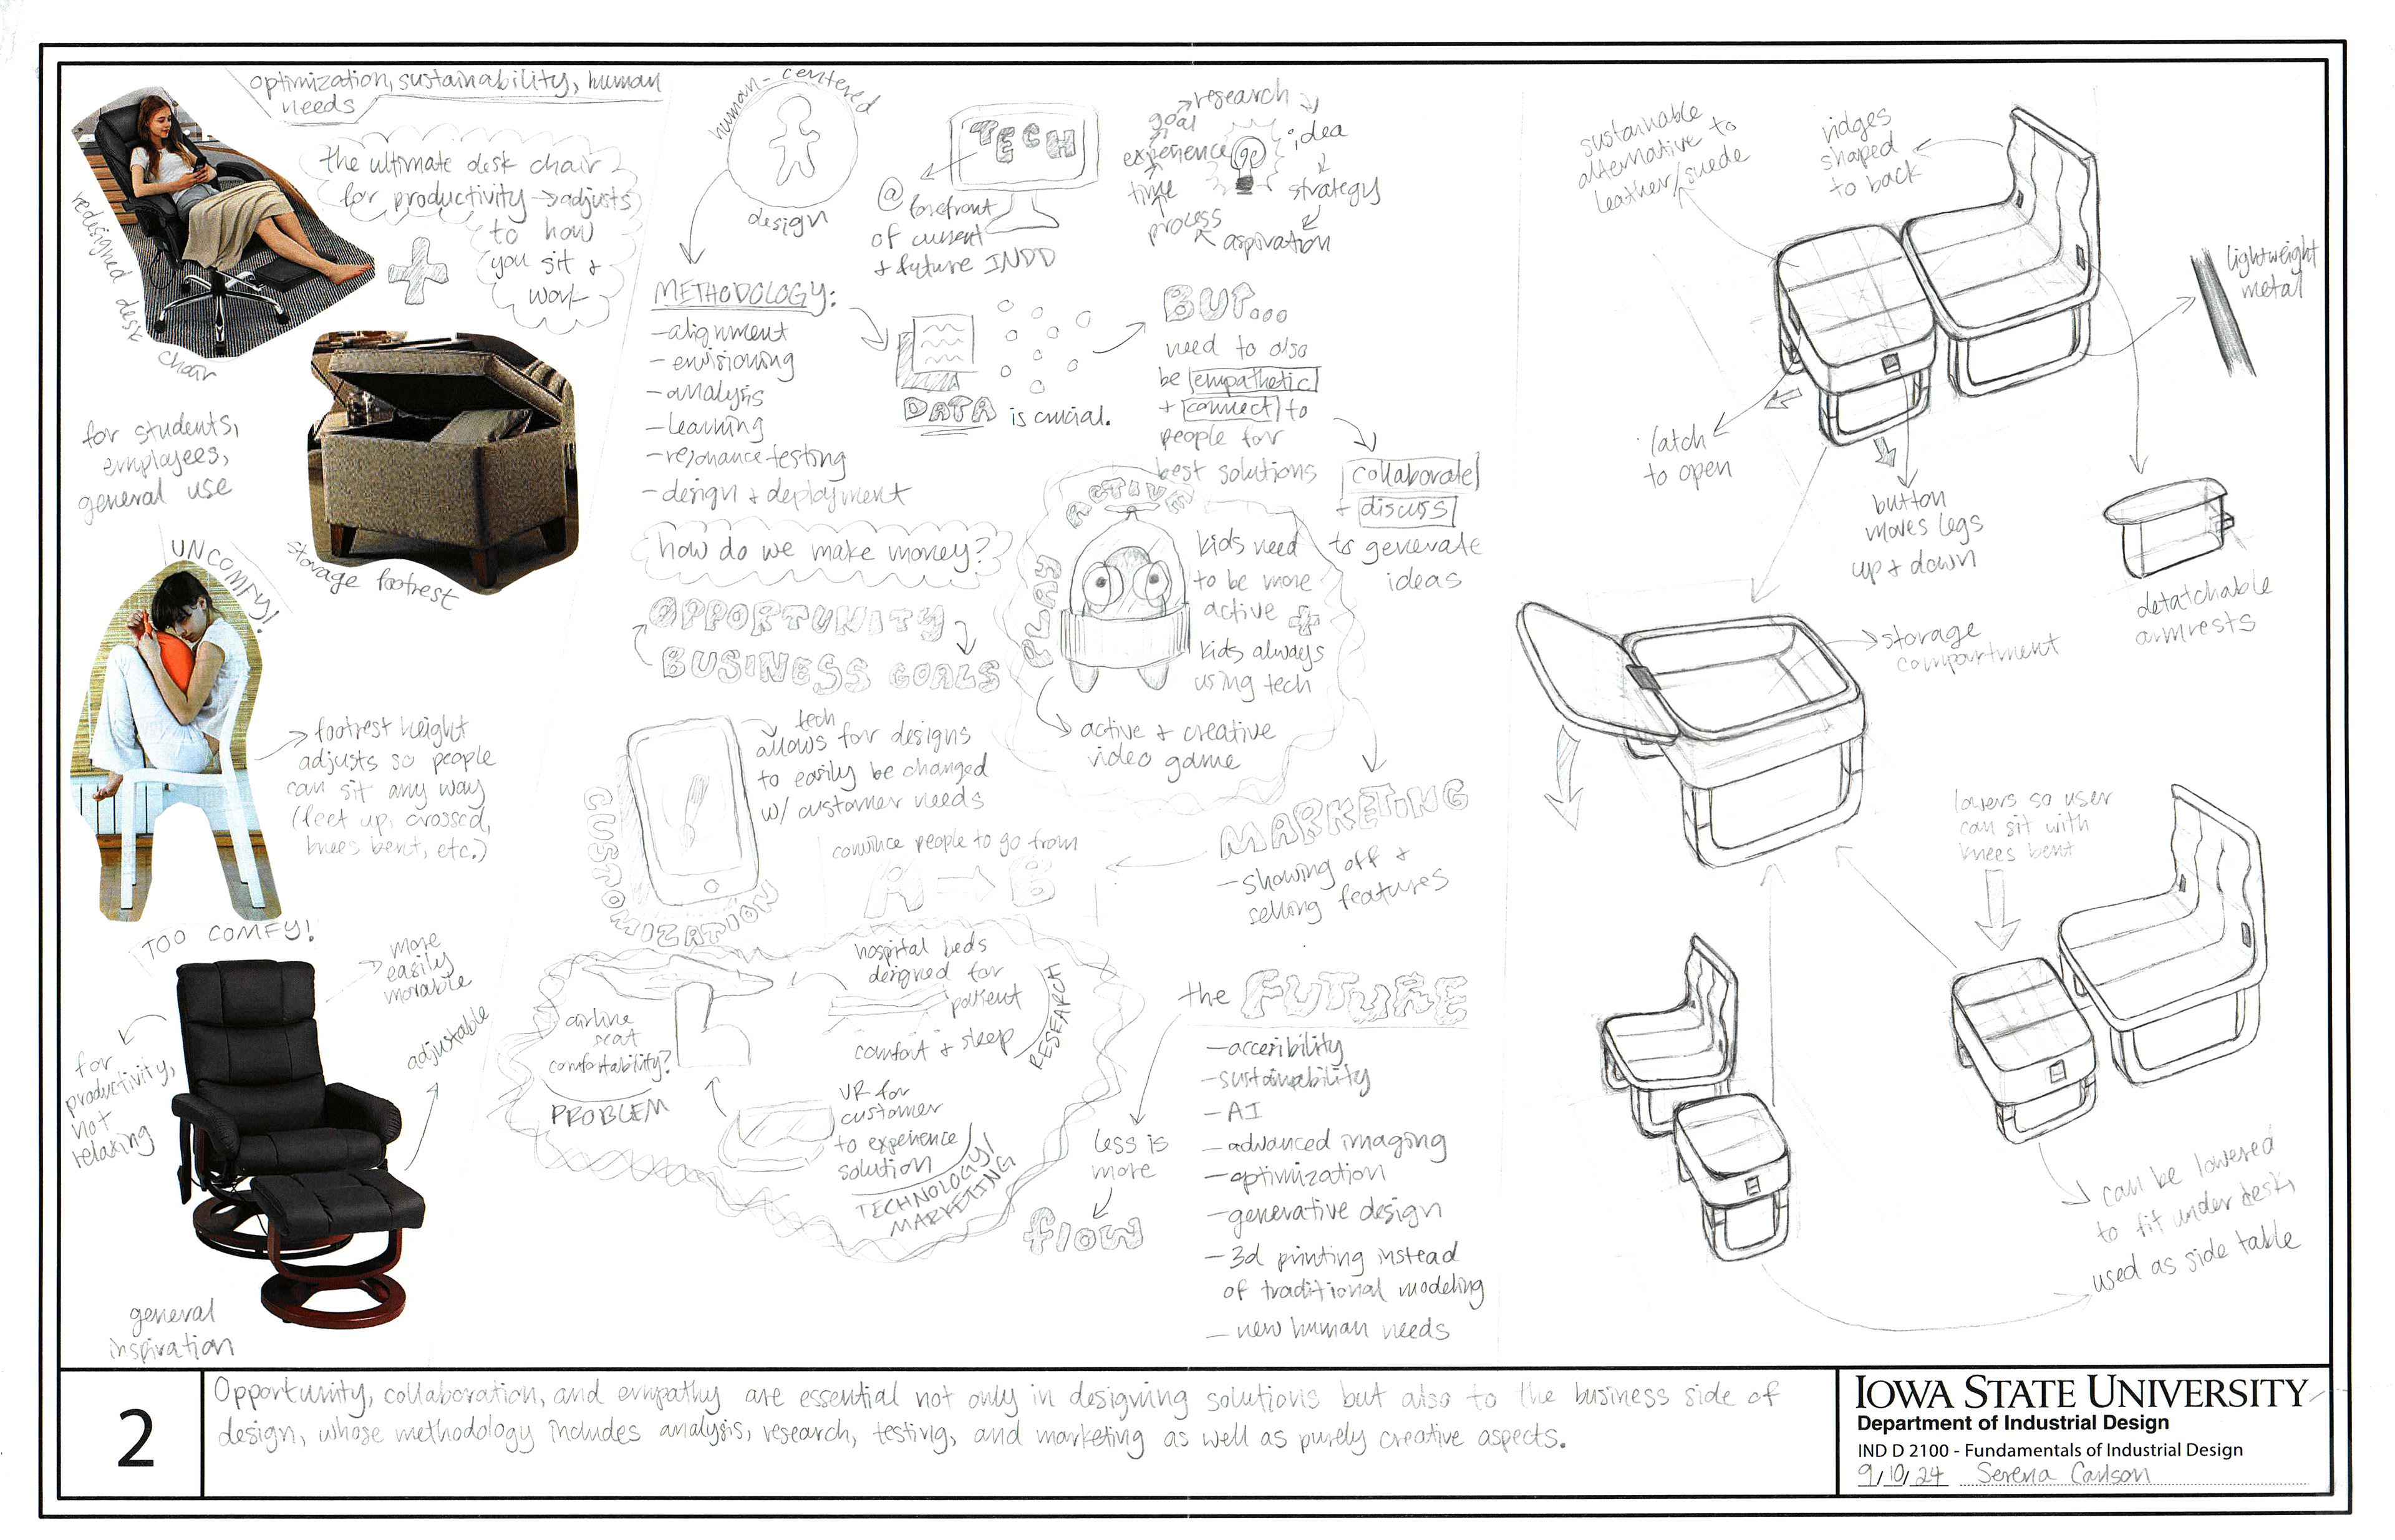 optimization, sustainability, human
needs
the ultimate desk chair
for productivity → adjusts
to how
you sit +
work
redesigned desk chair
for students,
employees,
general use
storage footrest
UNCOMFY!
→ footrest height
adjusts so people
can sit any way
(feet up, crossed,
knees bent, etc.)
TOO COMFY!
more
easily
movable
adjustable
for
productivity,
not
relaxing
general
inspiration
human-centered
design
TECH
@ forefront
of current
+ future INDD
research
idea
strategy
aspiration
process
time
experience
goal
METHODOLOGY:
-alignment
-envisioning
-analysis
-learning
-resonance testing
-design + deployment
DATA is crucial.
BUT...
need to also
be empathetic
+ connect to
people for
best solutions
collaborate
+ discuss
to generate
ideas
how do we make money?
OPPORTUNITY
BUSINESS GOALS
ACTIVE
PLAY
kids need
to be more
active +
kids always
using tech
active + creative
video game
CUSTOMIZATION
tech
allows for designs
to easily be changed
w/ customer needs
MARKETING
-showing off +
selling features
convince people to go from
A → B
airline
seat
comfortability?
PROBLEM
hospital beds
designed for
patient
comfort + sleep
RESEARCH
VR for
customer
to experience
solution
TECHNOLOGY/
MARKETING
the FUTURE
-accesibility
-sustainability
-AI
-advanced imaging
-optimization
-generative design
-3d printing instead
of traditional modeling
-new human needs
less is
more
flow
sustainable
alternative to
leather/suede
ridges
shaped
to back
lightweight
metal
latch
to open
button
moves legs
up + down
detatchable
armrests
storage
compartment
lowers so user
can sit with
knees bent
can be lowered
to fit under desk,
used as side table
2
Opportunity, collaboration, and empathy are essential not only in designing solutions but also to the business side of
design, whose methodology includes analysis, research, testing, and marketing as well as purely creative aspects.
IOWA STATE UNIVERSITY
Department of Industrial Design
IND D 2100 - Fundamentals of Industrial Design
9/10/24 Serena Carlson